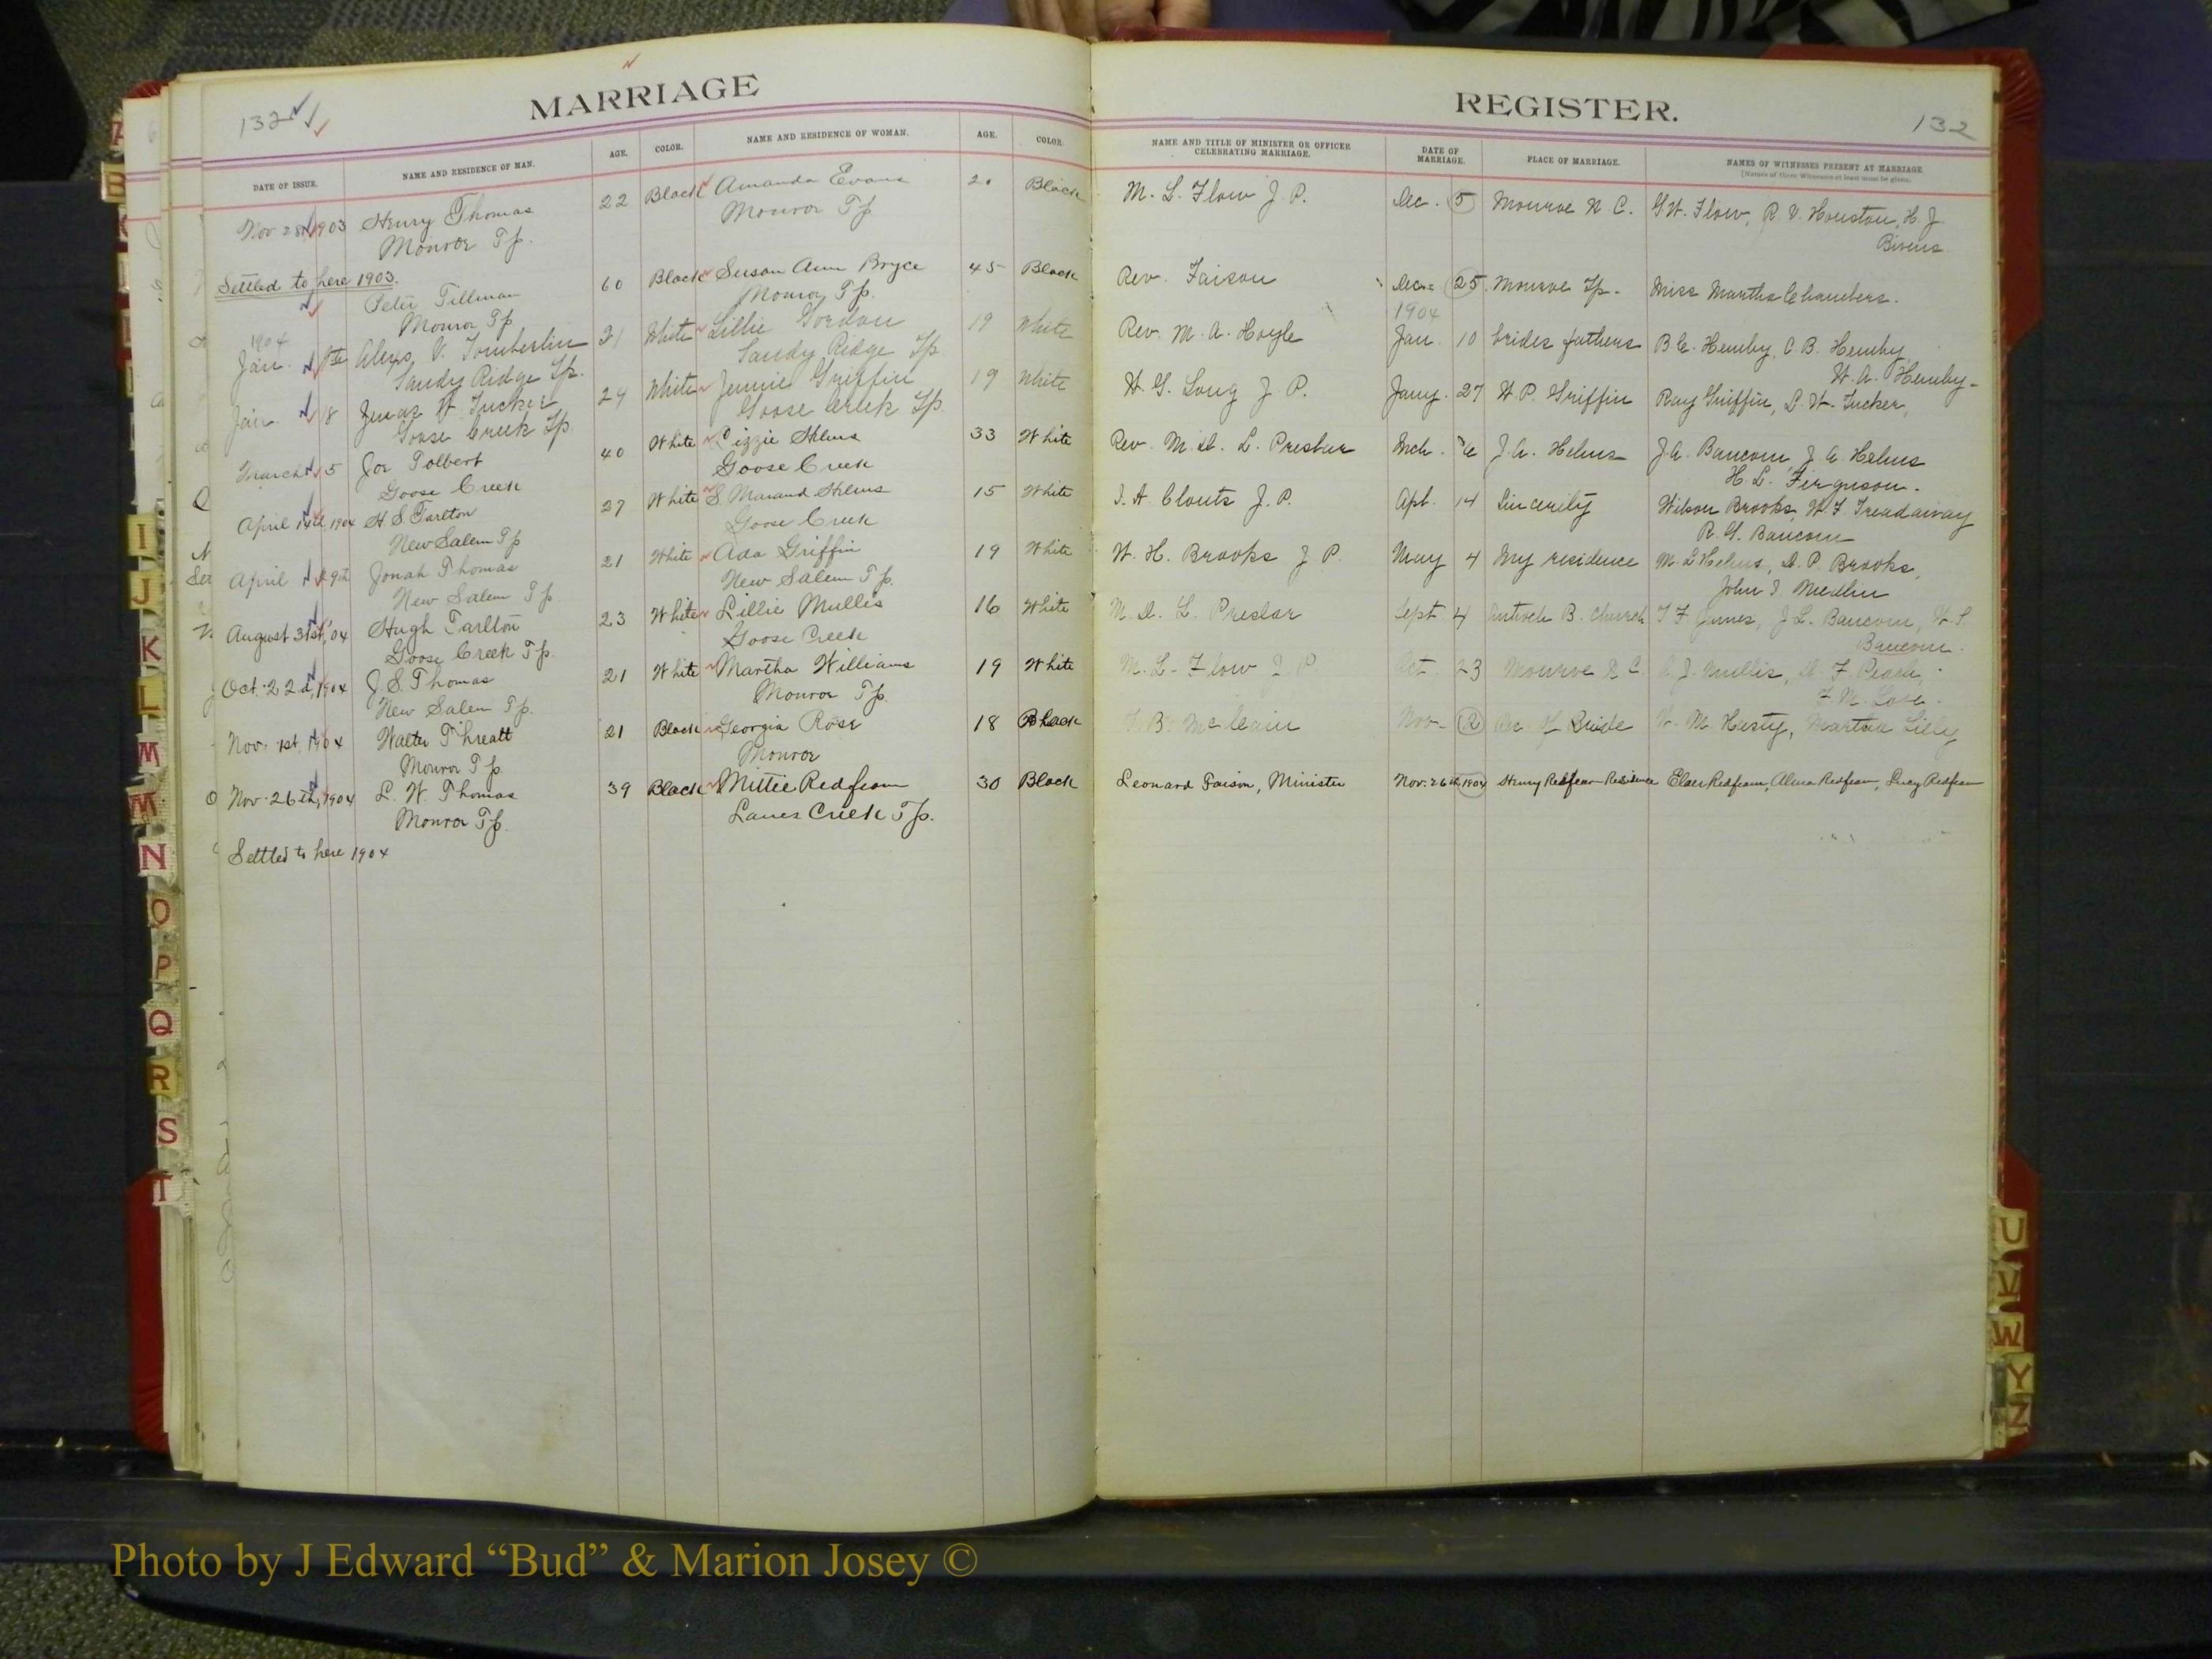 132
MARRIAGE
REGISTER.
132
DATE OF ISSUE.
NAME AND RESIDENCE OF MAN.
AGE.
COLOR.
NAME AND RESIDENCE OF WOMAN.
AGE.
COLOR.
NAME AND TITLE OF MINISTER OR OFFICER
CELEBRATING MARRIAGE.
DATE OF
MARRIAGE.
PLACE OF MARRIAGE.
NAMES OF WITNESSES PRESENT AT MARRIAGE
[Names of three Witnesses at least must be given.
Nov 28th 1903 Henry Thomas 22 Black Amanda Evans 20 Black M. L. Flow J. P. Dec. 5 Monroe N. C. G.W. Flow, R. V. Houston, H. J.
Monroe Tp. Monroe Tp Bivens
Settled to here 1903.
Peter Tillman 60 Black Susan Ann Bryce 45 Black Rev. Faison Dec. 25 Monroe Tp. Miss Martha Chambers.
Monroe Tp Monroe Tp.
1904 1904
Jan. Alexs. V. Tomberlin 21 White Lillie Gordon 19 White Rev. M. A. Hoyle Jan. 10 brides fathers B.C. Hemby, C. B. Hemby,
Sandy Ridge Tp. Sandy Ridge Tp W. A. Hemby
Jan. 18 W. Tucker 24 White Jennie Griffin 19 White H. G. Long J. P. Jany. 27 W. P. Griffin Ray Griffin, L. W. Tucker,
Goose Creek Tp. Goose Creek Tp
March 5 Joe Tolbert 40 White Lizzie Helms 33 White Rev. M. D. L. Preslar Mch. 6 J. A. Helms J. A. Baucom, J. A. Helms
Goose Creek Goose Creek H. L. Ferguson.
April 14th, 1904 H. S. Tarlton 27 White S. Helms 15 White I. A. Clonts J. P. Apl. 14 Sincerity Wilson Brooks, W. F. Treadaway
New Salem Tp Goose Creek R. G. Baucom
April 29th Jonah Thomas 21 White Ada Griffin 19 White W. H. Brooks J P. May 4 My residence M. L. Helms, D. P. Brooks,
New Salem Tp New Salem Tp. John I. Medlin
August 31st, 04 Hugh Tarlton 23 White Lillie Mullis 16 White M. D. L. Preslar Sept 4 Antioch B. Church T. F. James, J. L. Baucom, W. S.
Goose Creek Tp. Goose Creek Baucom.
Oct. 22d, 1904 J. S. Thomas 21 White Martha Williams 19 White M. L. Flow J. P. Oct. 23 Monroe N. C. J. Mullis,
New Salem Tp. Monroe Tp. F. M. Love.
Nov. 1st, 1904 Walter Threatt 21 Black Georgia Rose 18 Black B. McClain Nov 2 Res of Bride M. Hasty, Martha Lilly
Monroe Tp. Monroe
Nov. 26th, 1904 L. W. Thomas 39 Black Mittie Redfearn 30 Black Leonard Faison, Minister Nov. 26th, 1904 Henry Redfearn Residence Redfearn, Alma Redfearn, Lucy Redfearn
Monroe Tp. Lanes Creek Tp.
Settled to here 1904
I
J
K
L
M
M
N
O
P
Q
R
S
T
U
V
W
Y
Z
Photo by J Edward “Bud” & Marion Josey ©